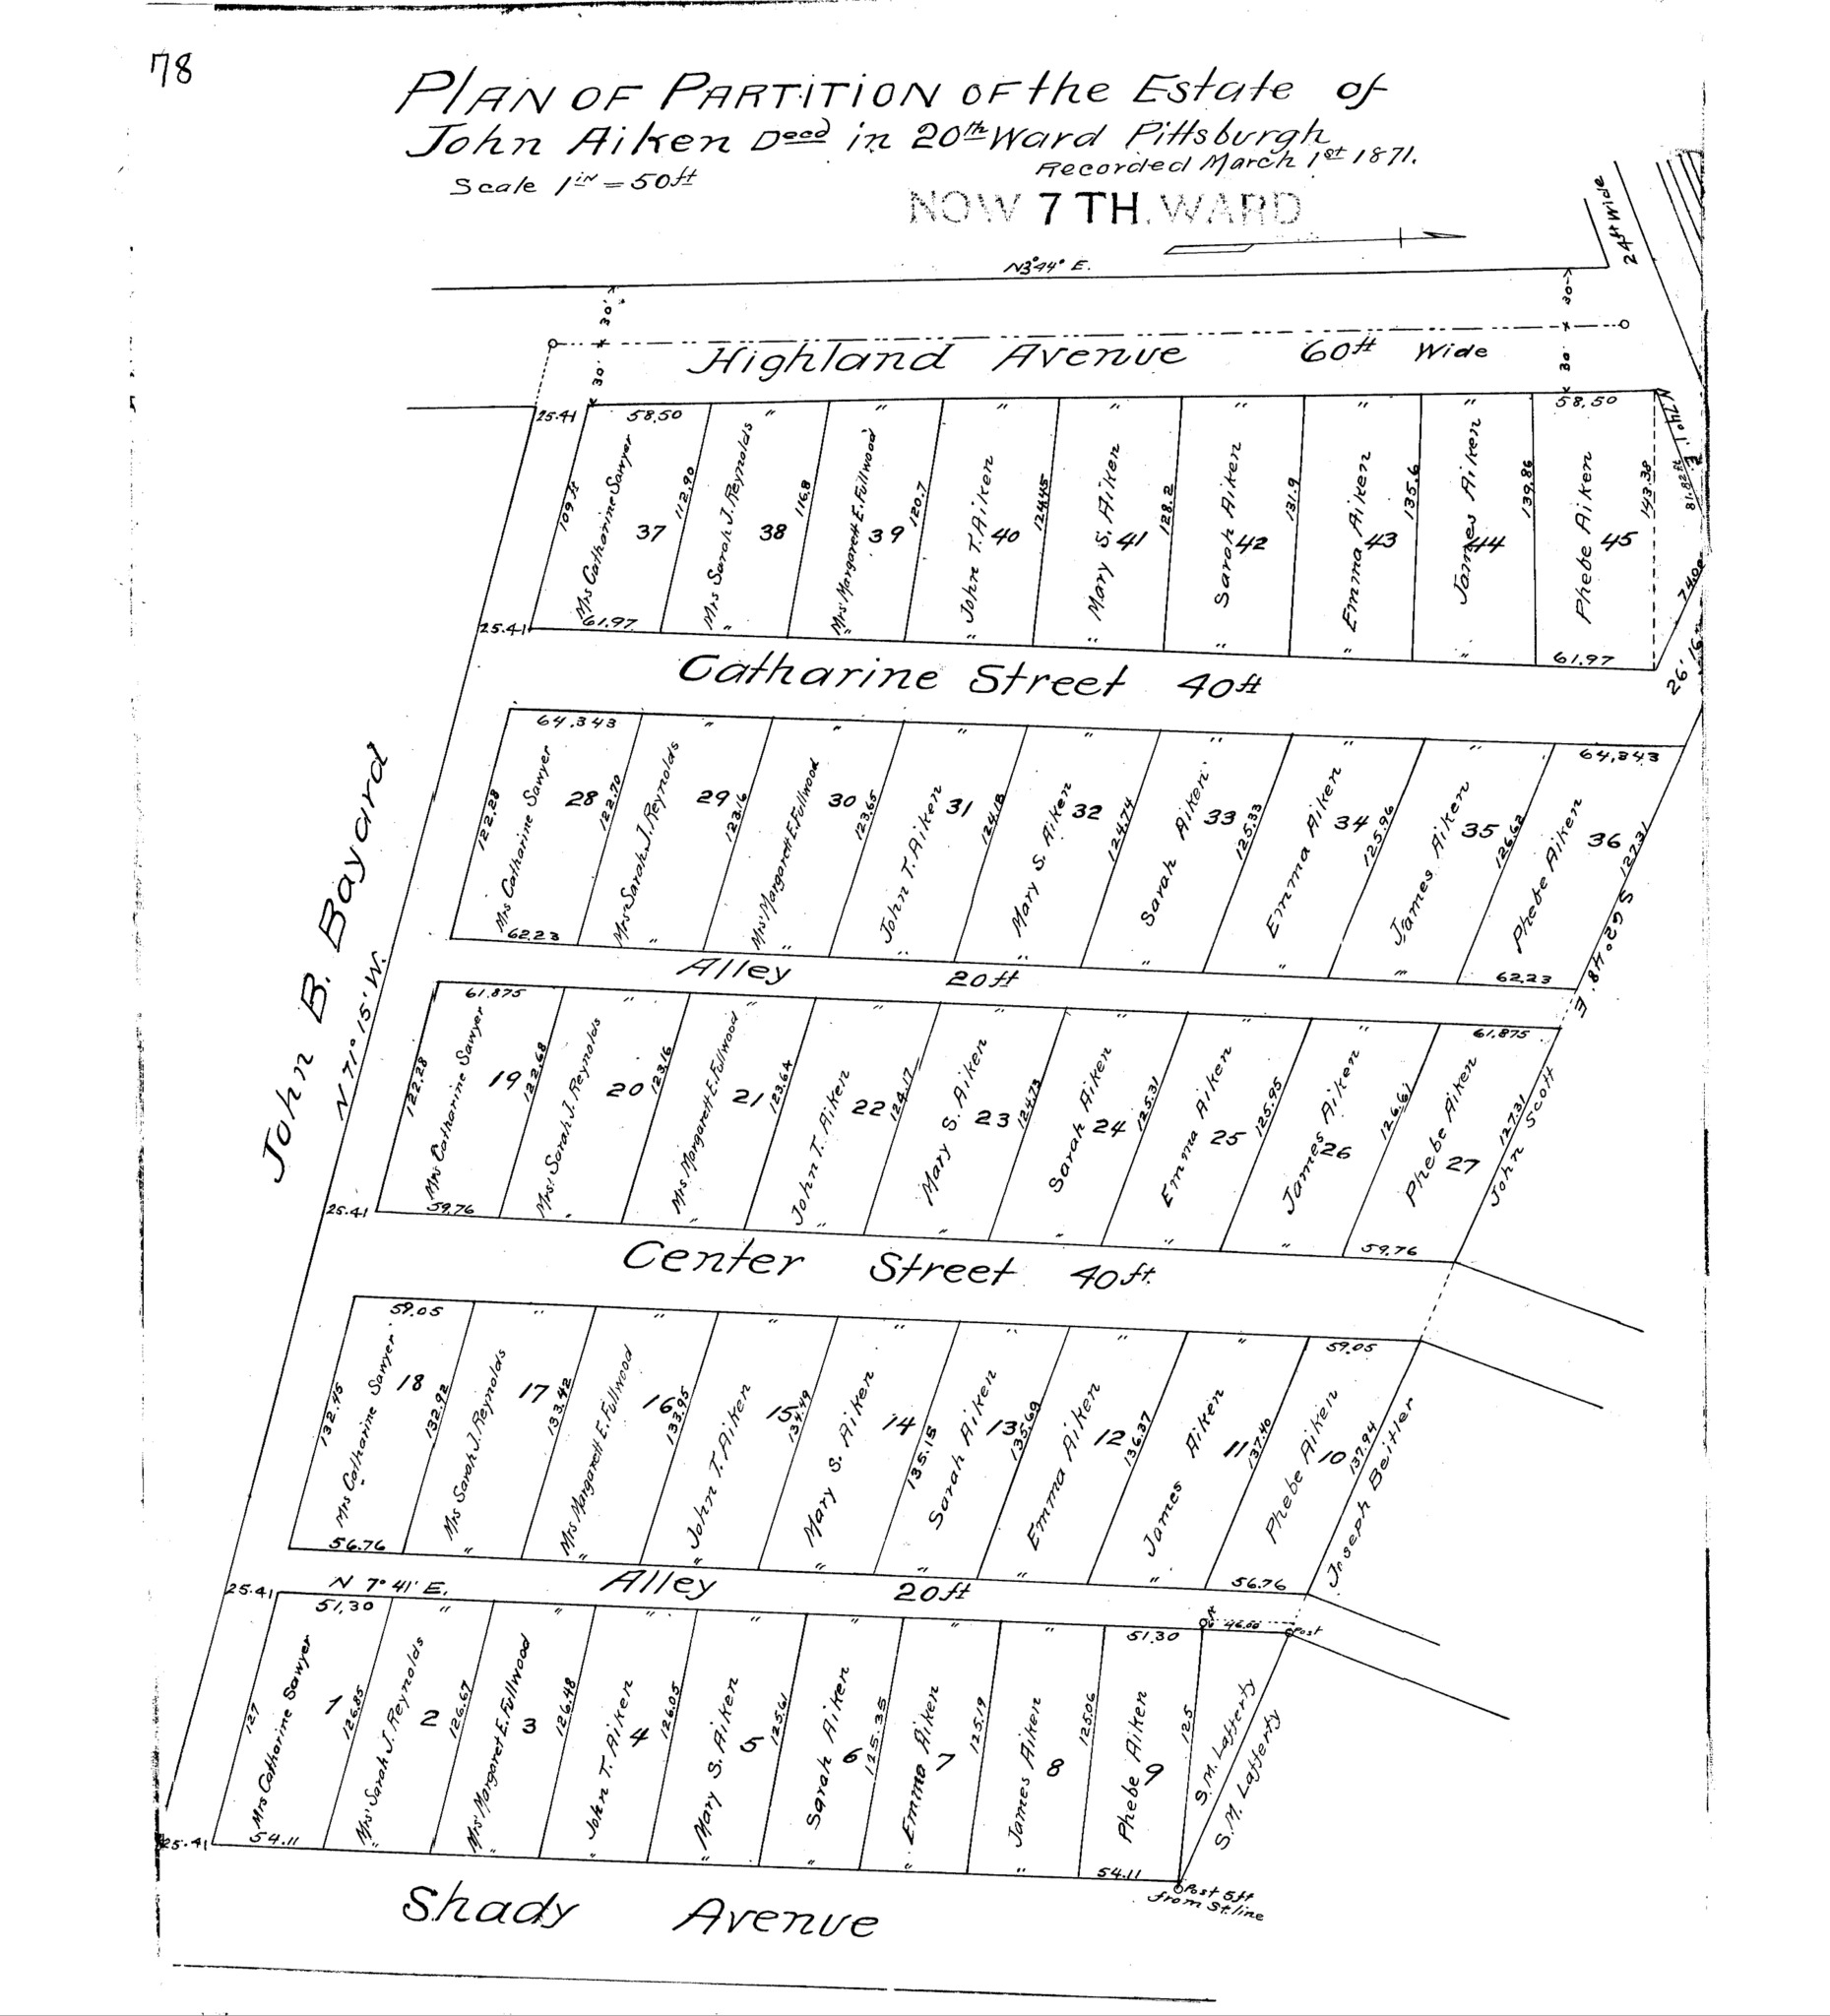 78
PLAN OF PARTITION OF the Estate of
John Aiken Decd in 20th Ward Pittsburgh
Recorded March 1st 1871.
Scale 1in = 50ft
NOW 7TH. WARD
24ft Wide
N3°44° E.
30' 30
Highland Avenue 60ft Wide
30' 30
25.41 58.50 " " " " " " " 58.50
N.74° 1' E
81.82 ft
109 ft Mrs Catharine Sawyer 37 112.90 Mrs Sarah J. Reynolds 38 116.8 Mrs Margarett E. Fullwood 39 120.7 John T. Aiken 40 124.45 Mary S. Aiken 41 128.2 Sarah Aiken 42 131.9 Emma Aiken 43 135.6 James Aiken 44 139.86 Phebe Aiken 45 143.38
74.00
25.41 61.97 " " " " " " " 61.97
26' 16"
Catharine Street 40ft
64.343 " " " " " " " 64,343
122.28 Mrs Catharine Sawyer 28 122.70 Mrs Sarah J. Reynolds 29 123.16 Mrs Margarett E. Fullwood 30 123.65 John T. Aiken 31 124.18 Mary S. Aiken 32 124.74 Sarah Aiken 33 125.33 Emma Aiken 34 125.96 James Aiken 35 126.62 Phebe Aiken 36 127.31
S 62° 48' E
62.23 " " " " " " " 62.23
John B. Bayard
N 71° 15' W.
Alley 20ft
61.875 " " " " " " " 61.875
122.28 Mrs Catharine Sawyer 19 122.68 Mrs. Sarah J. Reynolds 20 123.16 Mrs Margarett E. Fullwood 21 123.64 John T. Aiken 22 124.17 Mary S. Aiken 23 124.73 Sarah Aiken 24 125.31 Emma Aiken 25 125.95 James Aiken 26 126.61 Phebe Aiken 27 127.31
John Scott
25.41 59.76 " " " " " " " 59.76
Center Street 40ft.
59.05 " " " " " " " 59.05
132.45 Mrs Catharine Sawyer 18 132.92 Mrs Sarah J. Reynolds 17 133.42 Mrs Margarett E. Fullwood 16 133.95 John T. Aiken 15 134.49 Mary S. Aiken 14 135.15 Sarah Aiken 13 135.69 Emma Aiken 12 136.37 James Aiken 11 137.40 Phebe Aiken 10 137.94
Joseph Beitler
56.76 " " " " " " " 56.76
25.41 N 7° 41' E. Alley 20ft
51,30 " " " " " " " 51.30 46.00 Post
127 Mrs Catharine Sawyer 1 126.85 Mrs Sarah J. Reynolds 2 126.67 Mrs Margaret E. Fullwood 3 126.48 John T. Aiken 4 126.05 Mary S. Aiken 5 125.61 Sarah Aiken 6 125.35 Emma Aiken 7 125.19 James Aiken 8 125.06 Phebe Aiken 9 125
S.M. Lafferty
S.M. Lafferty
25.41 54.11 " " " " " " " 54.11
Post 5ft
from St. line
Shady Avenue